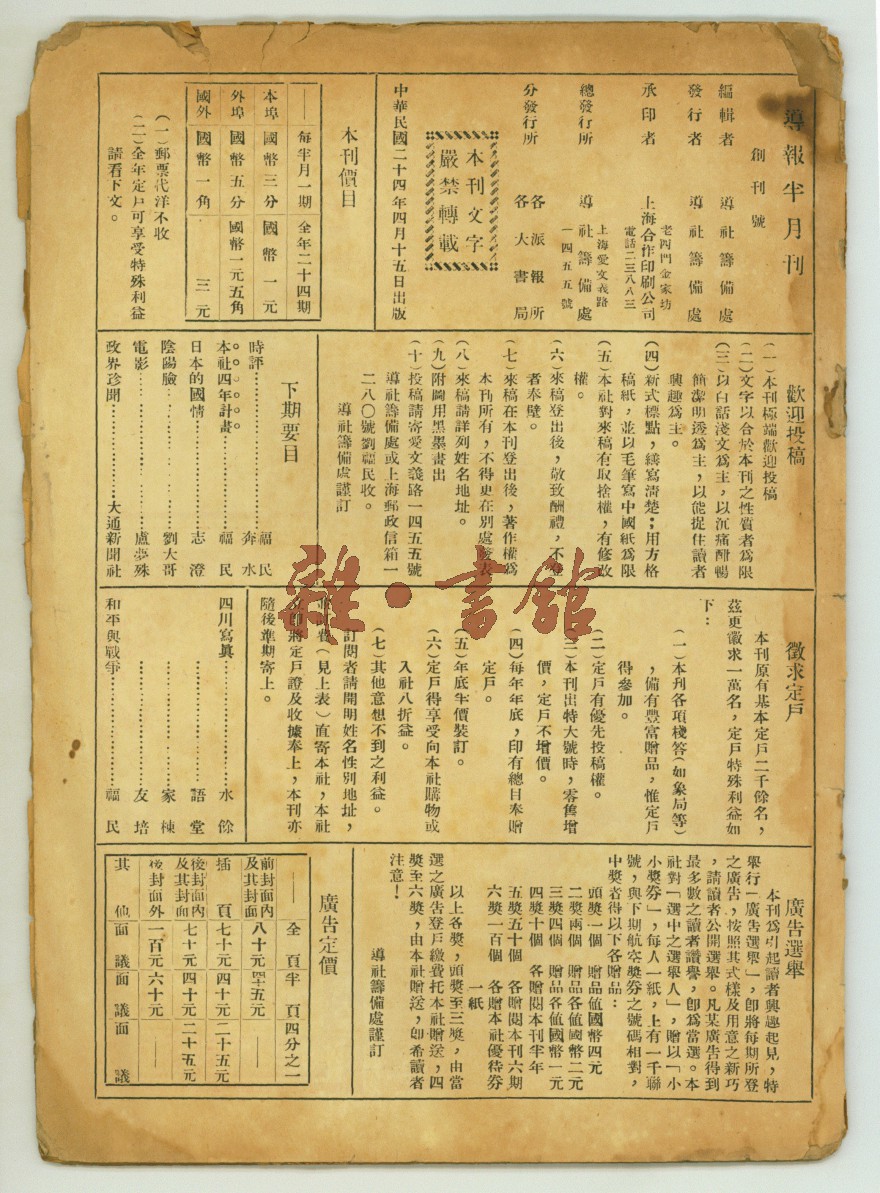 導報半月刊
創刊號
編輯者 導社籌備處
發行者 導社籌備處
承印者 上海合作印刷公司
老西門金家坊
電話二三八八三
總發行所 導社籌備處
上海愛文義路
一四五五號
分發行所 各派報所
各大書局
本刊文字
嚴禁轉載
中華民國二十四年四月十五日出版
本刊價目
每半月一期 全年二十四期
本埠 國幣三分 國幣一元
外埠 國幣五分 國幣一元五角
國外 國幣一角 三元
(一)郵票代洋不收
(二)全年定戶可享受特殊利益
請看下文。
歡迎投稿
(一)本刊極端歡迎投稿
(二)文字以合於本刊之性質者爲限
(三)以白話淺文爲主,以沉痛酣暢
簡潔明透爲主,以能捉住讀者
興趣爲主。
(四)新式標點,繕寫清楚;用方格
稿紙,並以毛筆寫中國紙爲限
(五)本社對來稿有取捨權,有修改
權。
(六)來稿登出後,敬致酬禮,不登
者奉璧。
(七)來稿在本刊登出後,著作權爲
本刊所有,不得更在別處發表
(八)來稿請詳列姓名地址。
(九)附圖用黑墨畫出
(十)投稿請寄愛文義路一四五五號
導社籌備處或上海郵政信箱一
二八〇號劉福民收。
導社籌備處謹訂
下期要目
時評……福民
奔水
本社四年計畫……福民
日本的國情……志澄
陰陽臉……劉大哥
電影……盧夢殊
政界珍聞……大通新聞社
徵求定戶
本刊原有基本定戶二千餘名,
茲更徵求一萬名,定戶特殊利益如
下:
(一)本刋各項獎答(如象局等)
,備有豐富贈品,惟定戶
得參加。
(二)定戶有優先投稿權。
(三)本刊出特大號時,零售增
價,定戶不增價。
(四)每年年底,印有總目奉贈
定戶。
(五)年底半價裝訂。
(六)定戶得享受向本社購物或
入社八折益。
(七)其他意想不到之利益。
訂閱者請開明姓名性別地址,
並匯費(見上表)直寄本社,本社
立即將定戶證及收據奉上,本刊亦
隨後準期寄上。
四川寫眞……水餘
……語堂
……家棟
……友培
和平與戰爭……福民
廣告選舉
本刊爲引起讀者興趣起見,特
舉行「廣告選舉」,卽將每期所登
之廣告,按照其式樣及用意之新巧
,請讀者公開選舉。凡某廣告得到
最多數之讀者讚譽,卽爲當選。本
社對「選中之選舉人」,贈以「小
小獎券」,每人一紙,上有一千聯
號,與下期航空獎券之號碼相對,
中獎者得以下各贈品:
頭獎一個 贈品値國幣四元
二獎兩個 贈品各値國幣二元
三獎四個 贈品各値國幣一元
四獎十個 各贈閱本刊半年
五獎五十個 各贈閱本刊六期
六獎一百個 各贈本社優待券
一紙
以上各獎,頭獎至三獎,由當
選之廣告登戶繳費托本社贈送,四
獎至六獎,由本社贈送,卽希讀者
注意!
導社籌備處謹訂
廣告定價
全頁 半頁 四分之一
前封面內及其封面 八十元 四十五元
插頁 七十元 四十元 二十五元
後封面內及其封面 七十元 四十元 二十五元
後封面外 一百元 六十元
其他 面議 面議 面議
雜·書館